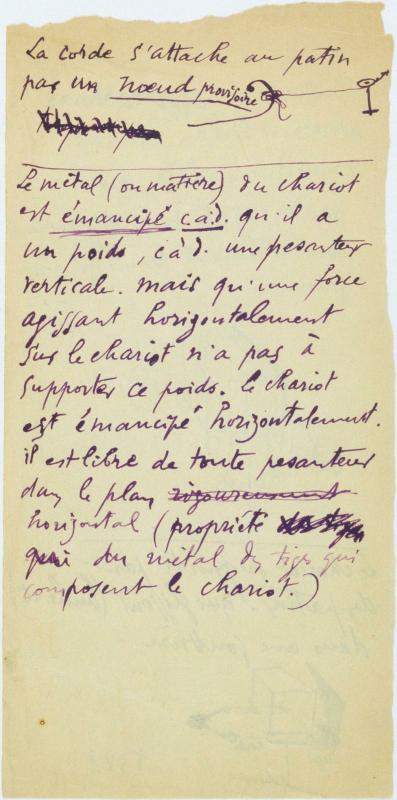 La corde s'attache au patin
par un nœud provisoire
Le métal (ou matière) du chariot
est émancipé c.à.d. qu'il a
un poids, c à d. une pesanteur
verticale. mais qu'une force
agissant horizontalement
sur le chariot n'a pas à
supporter ce poids. le chariot
est émancipé horizontalement.
il est libre de toute pesanteur
dans le plan rigoureusement
horizontal (propriété des tiges
qui du métal des tiges qui
composent le chariot.)